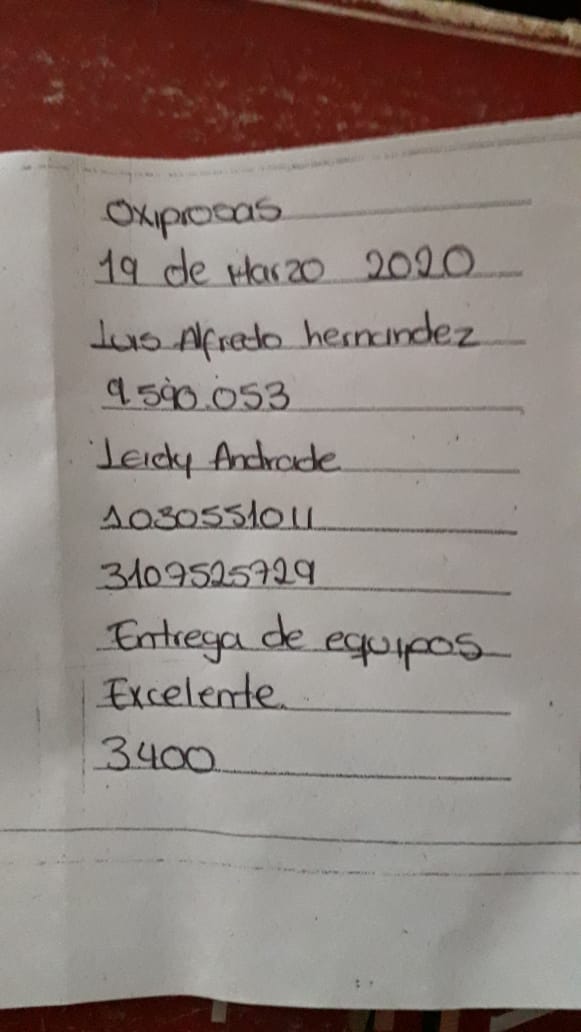 Oxiprocas
19 de Marzo 2020
Luis Alfredo hernandez
9590.053
Leidy Andrade
1030551011
3107525729
Entrega de equipos
Excelente.
3400